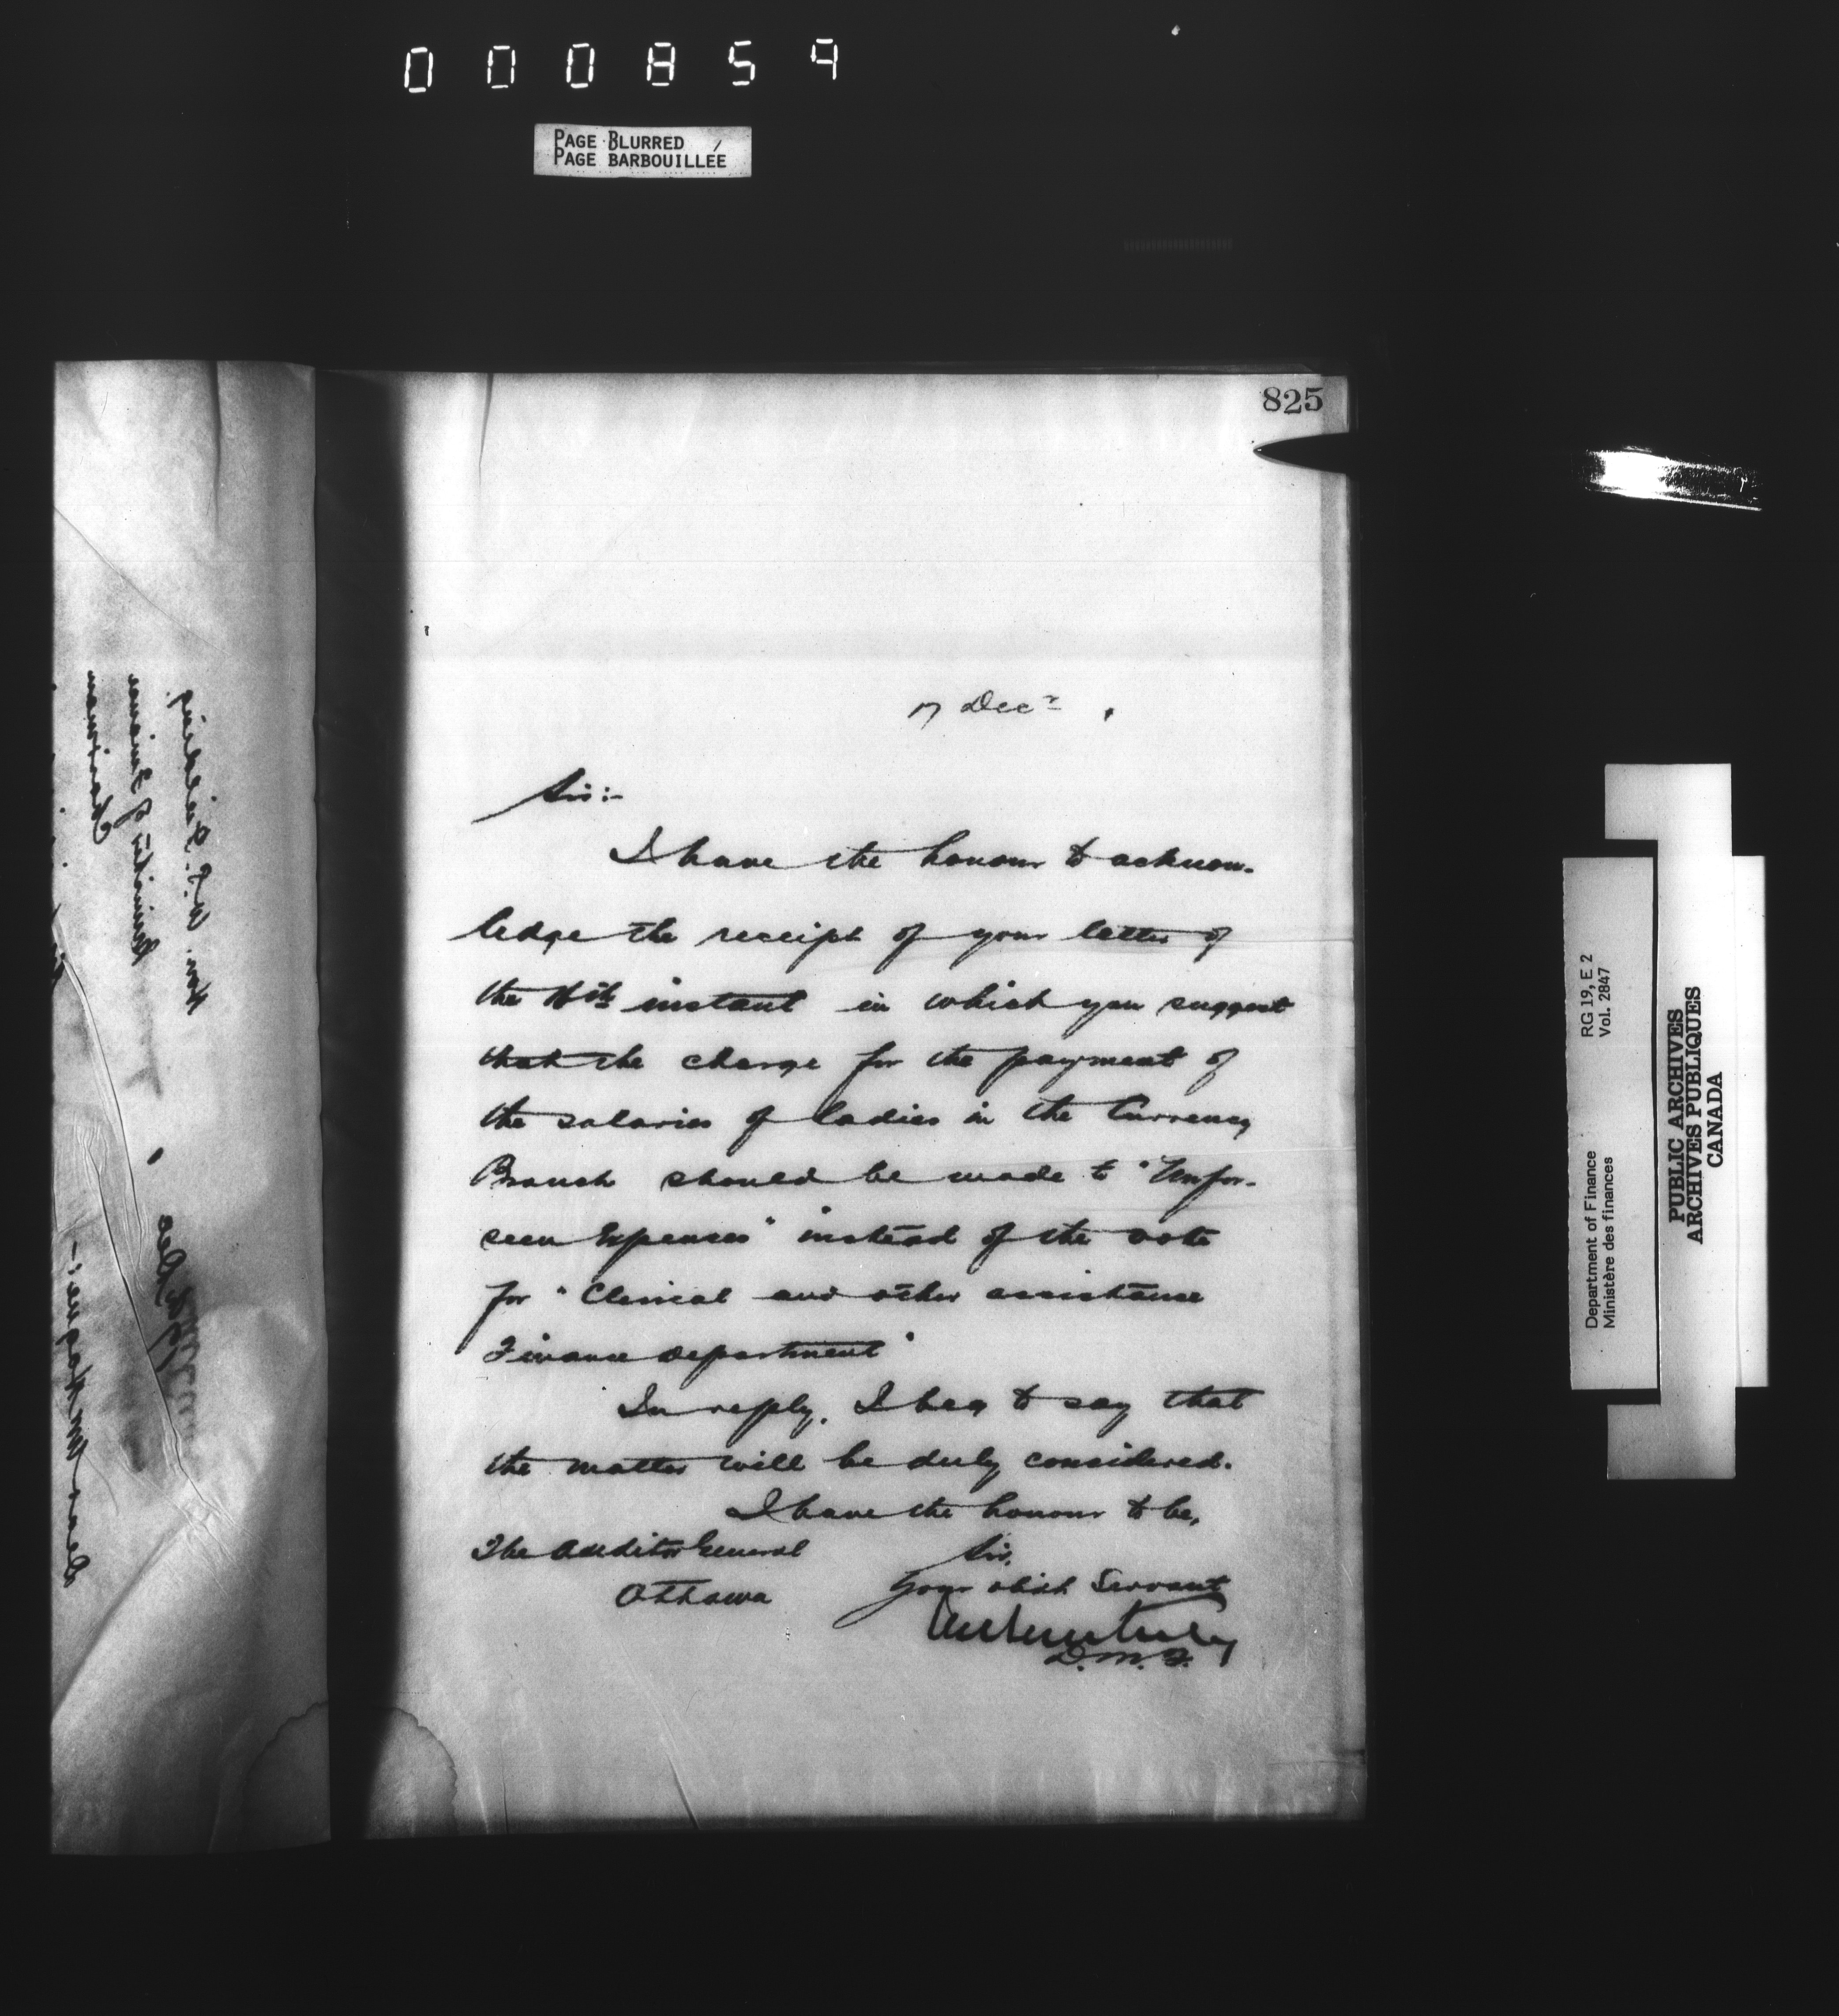 000859
PAGE BLURRED
PAGE BARBOUILLÉE
825
17 Decr
Sir:-
I have the honour to acknow-
ledge the receipt of your letter of
the 16th instant in which you suggest
that the charge for the payment of
the salaries of ladies in the Currency
Branch should be made to "Unfor-
seen Expenses" instead of the vote
for "Clerical and other assistance
Finance Department"
In reply, I beg to say that
the matter will be duly considered.
I have the honour to be,
Sir,
Your obdt Servant
D.M.F.
The Auditor General
Ottawa
Hon. W.S. Fielding
Minister of Finance
Chairman
Dear Mr Hague:-
Department of Finance RG 19, E 2
Ministère des finances Vol. 2847
PUBLIC ARCHIVES
ARCHIVES PUBLIQUES
CANADA